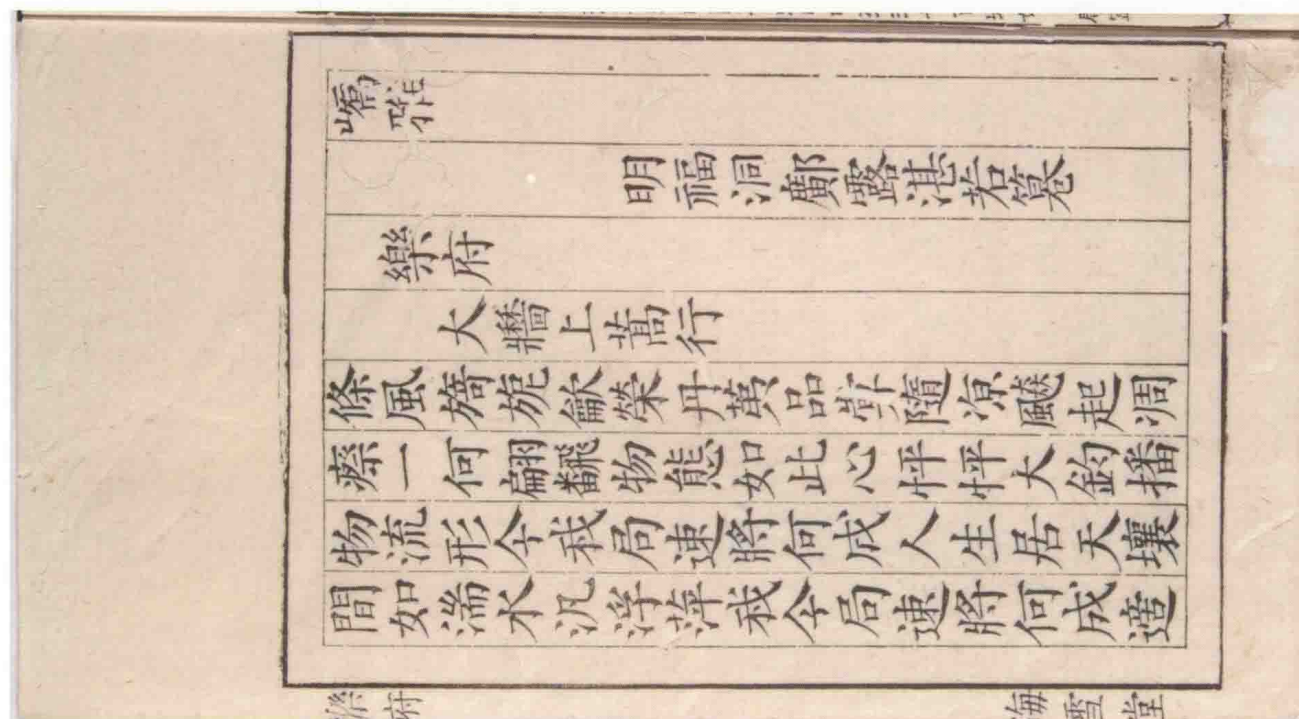 嶠雅
明福洞鄺露湛若篹
樂府
大牆上蒿行
條風旖旎榮丹萬品隨凉飈起凋
瘵一何翩飜物態如此心怦怦大鈞播
物流形今我局速將何成人生居天壤
間如湍水汎浮萍我今局速將何成適
樂府
海雪堂